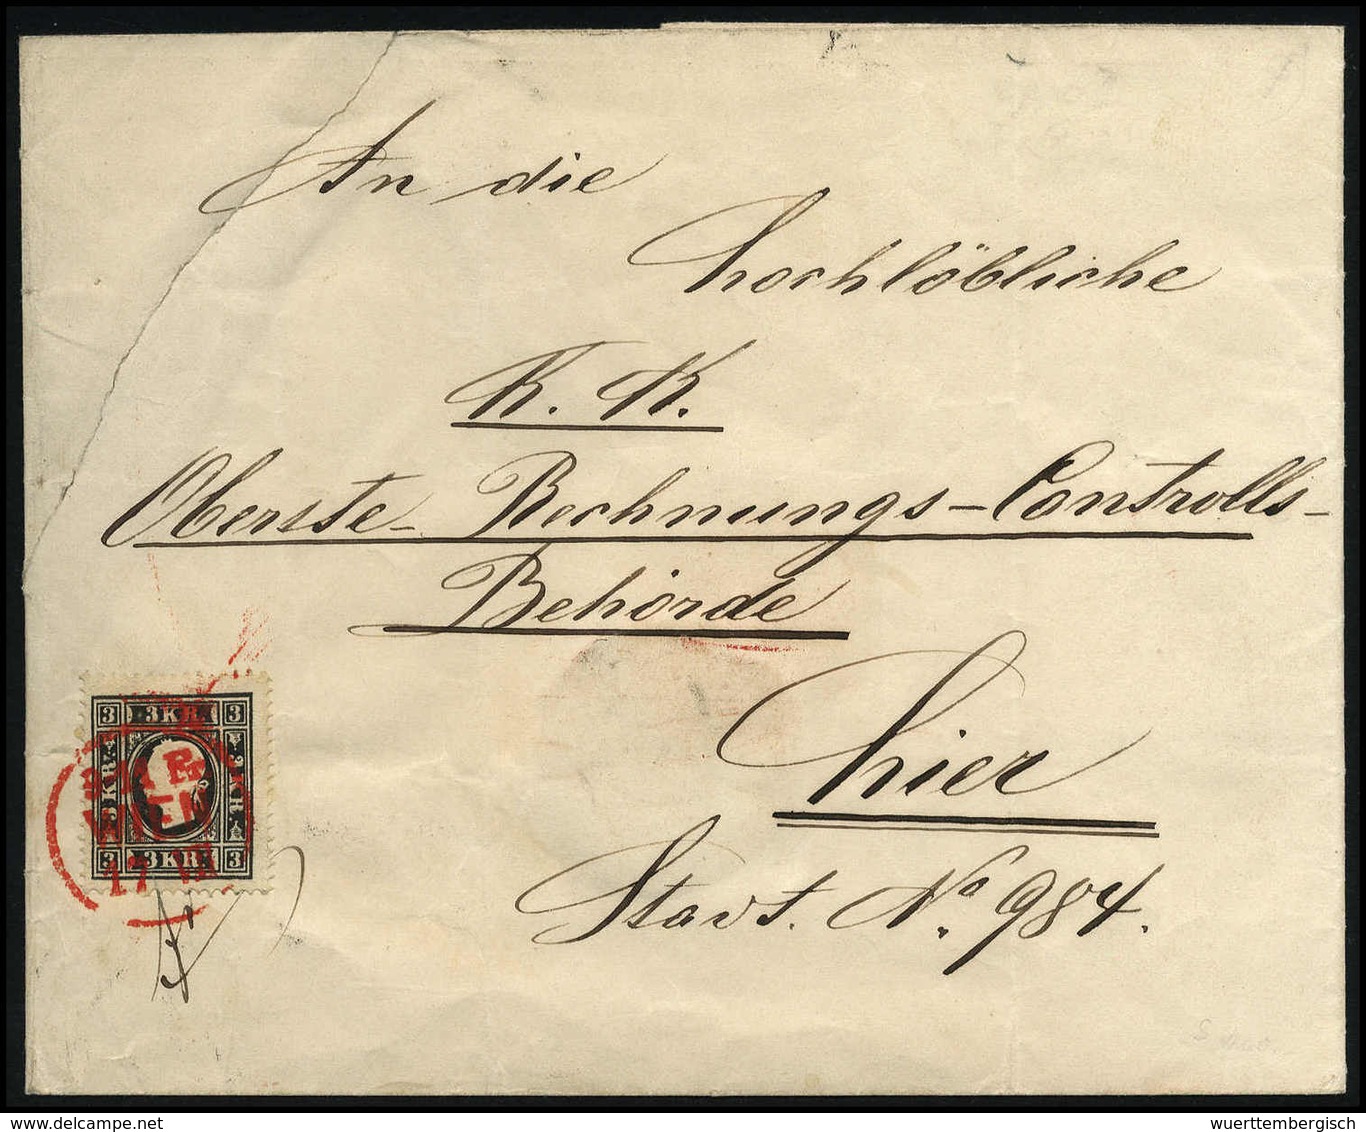 An die
hochlöbliche
K. K.
Oberste Rechnungs-Controlls-
Behörde
hier
Stadt. No. 984.
3 KR 3
WIEN
17
3 3 KR 3
wuerttembergisch